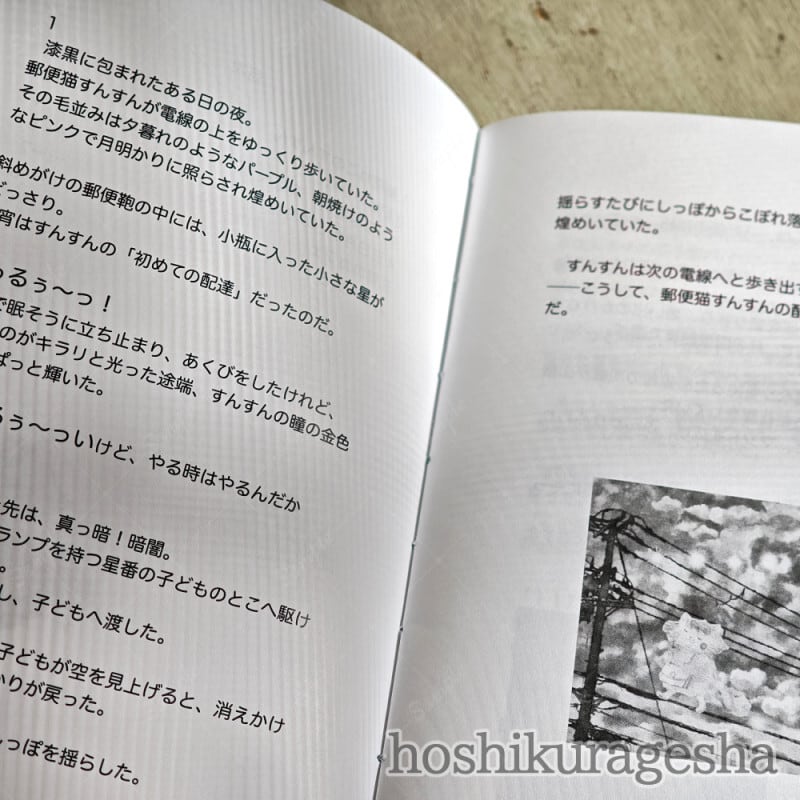 1
漆黒に包まれたある日の夜。
郵便猫すんすんが電線の上をゆっくり歩いていた。
その毛並みは夕暮れのようなパープル、朝焼けのよう
なピンクで月明かりに照らされ煌めいていた。
斜めがけの郵便鞄の中には、小瓶に入った小さな星が
どっさり。
宵はすんすんの「初めての配達」だったのだ。
るぅ〜っ！
で眠そうに立ち止まり、あくびをしたけれど、
のがキラリと光った途端、すんすんの瞳の金色
ぱっと輝いた。
るぅ〜ついけど、やる時はやるんだか
先は、真っ暗！暗闇。
ランプを持つ星番の子どものとこへ駆け
。
し、子どもへ渡した。
子どもが空を見上げると、消えかけ
かりが戻った。
しっぽを揺らした。
揺らすたびにしっぽからこぼれ落
煌めいていた。
すんすんは次の電線へと歩き出す
――こうして、郵便猫すんすんの配
だ。
hoshikuragesha